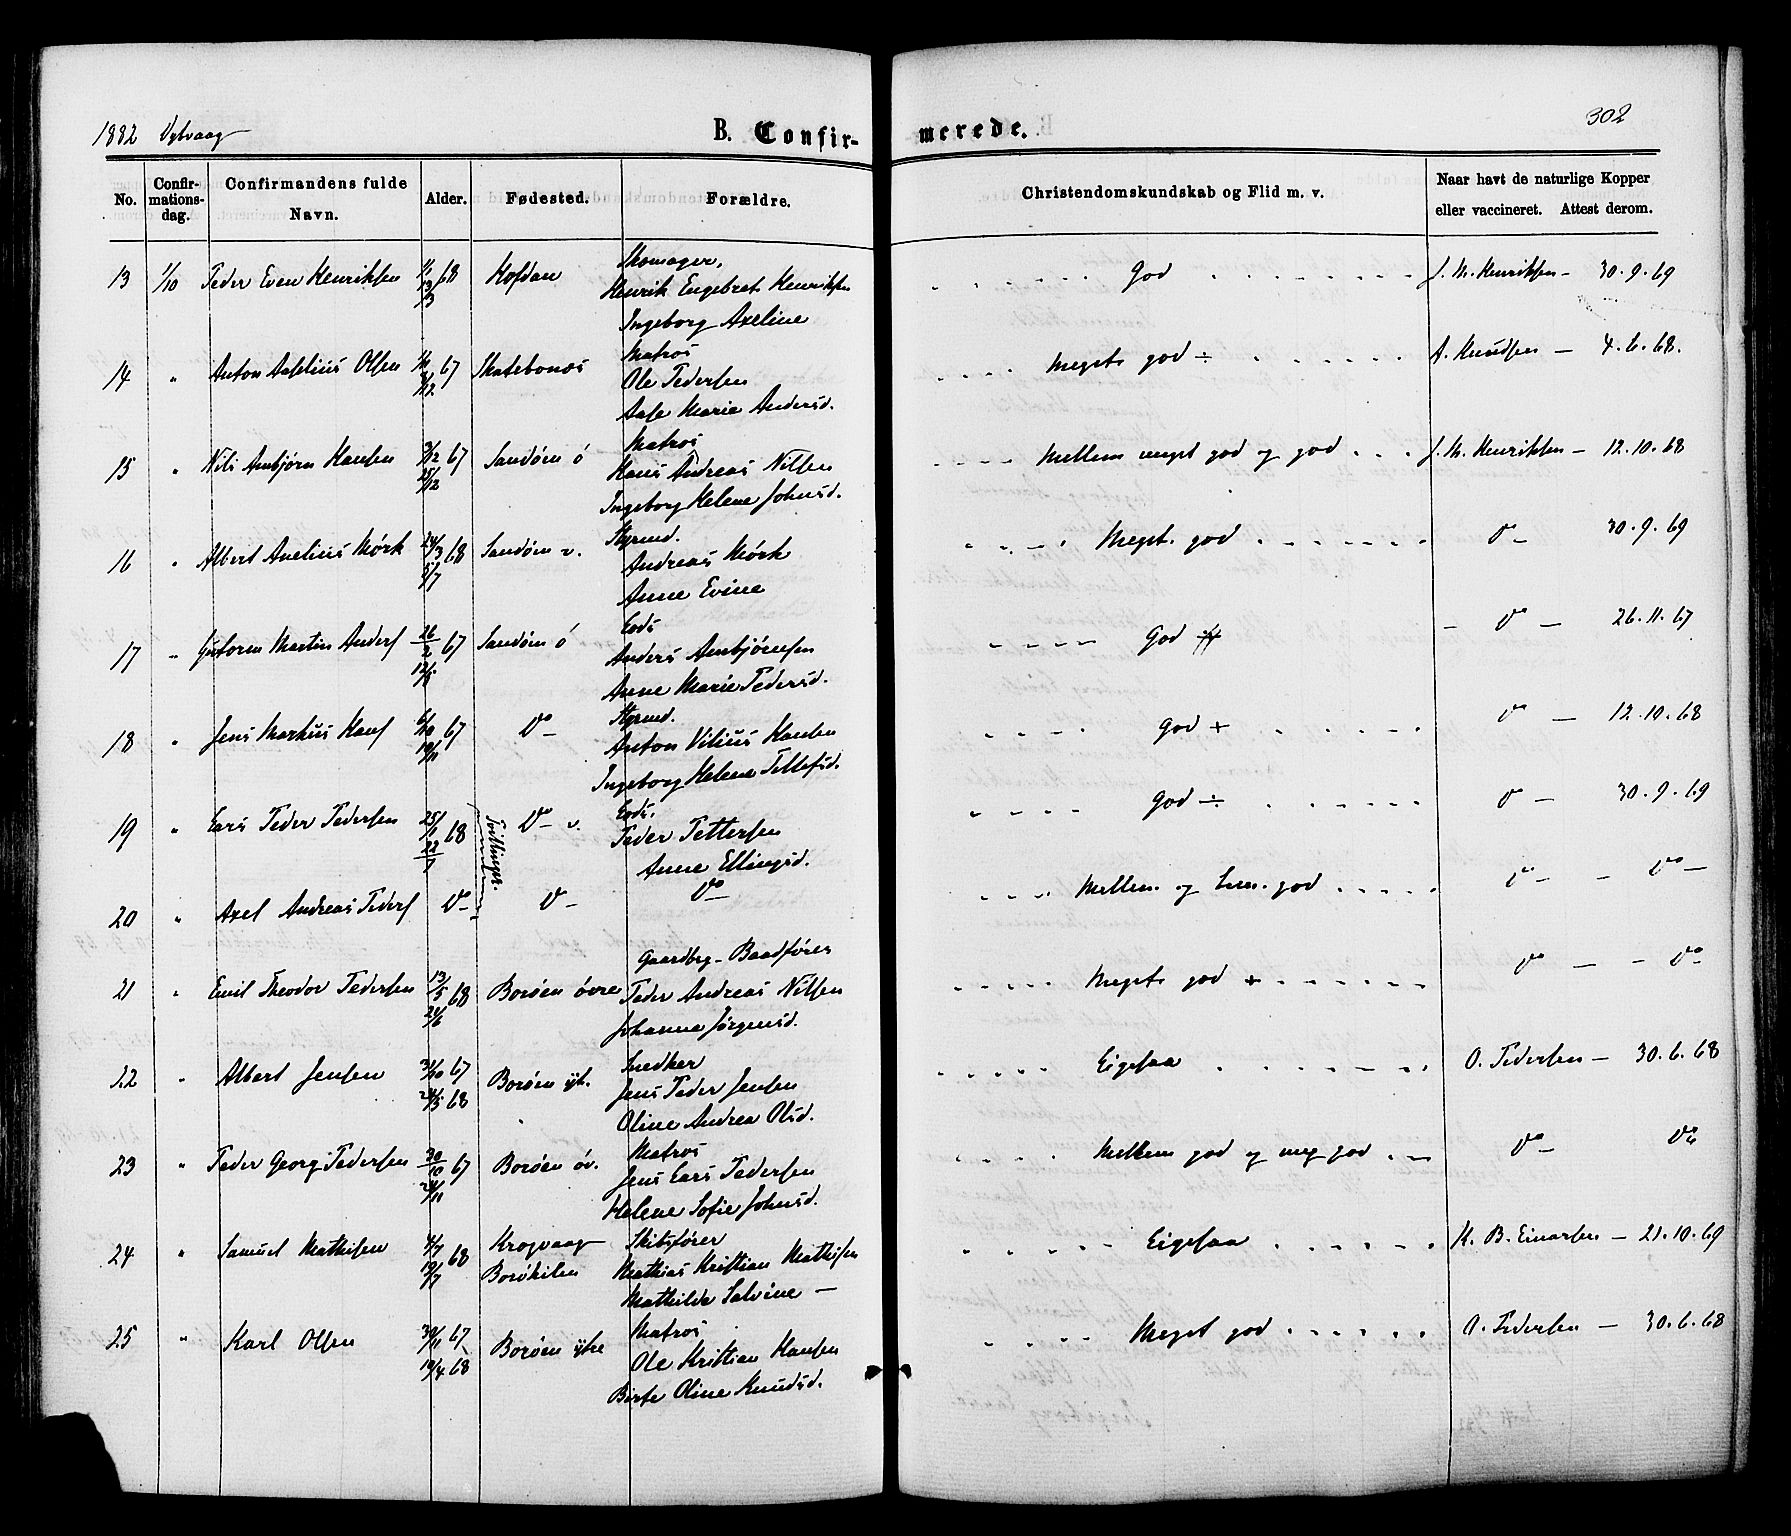 1882 302
B. Confir- merede.
No. Confir-mations-dag. Confirmandens fulde Navn. Alder. Fødested. Forældre. Christendomskundskab og Flid m. v. Naar havt de naturlige Kopper eller vaccineret. Attest derom.
Skomager,
13 1/10 Peder Even Henriksen 68 Henrik Engebret Henriksen God J. M. Henriksen – 30.9.69
Ingeborg Axeline
Matros
14 " Anton Olsen 67 Ole Pedersen Meget god ÷ A. Knudsen – 4.6.68.
Aase Marie Andersd.
Matros
15 " Nils Arnbjørn Hansen 67 Sandøen ö Hans Andreas Nilsen Mellem meget god og god J. M. Henriksen – 12.10.68
Ingeborg Helene Johnsd.
Styrmd.
16 " Albert Mörk 24/3 68 5/7 Sandøen v. Andreas Mörk Meget god do – 30.9.69
Anne Evine
Lods
17 " Guttorm Martin Anders 26/2 67 Sandøen ö Anders Arnbjörnsen God – do – 26.11.67
Anne Marie Pedersd.
Styrmd.
18 " Jens Markus Hans 6/10 67 19/11 do – Anton Vilius Hansen God + do – 12.10.68
Ingeborg Helene Tellefsd.
Lods.
19 " Lars Peder Pedersen 25/1 68 22/7 Tvillinger. do – v. Peder Pettersen God ÷ do – 30.9.69
Anne Ellingsd.
20 " Axel Andreas Peders do – do – do Mellem. og god do – – do –
Gaardbr. – Baadfører
21 " Emil Theodor Pedersen 13/5 68 24/6 Borøen övre Peder Andreas Nilsen Meget god + do – – do
Johanne Jørgensd.
Snedker
22 " Albert Jensen 67 68 Borøen yt. Jens Peder Jensen Ligesaa O. Pedersen – 30.6.68
Oline Andrea Olsd.
Matros
23 " Peder Georg Pedersen 30/10 67 Borøen öv. Jens Lars Pedersen Mellem god og meg god do – do
Helene Sofie Johnsd.
24 " Samuel Mathisen 4/7 68 19/7 Krogvaag Borøkilen Skibsfører Ligesaa K. B. Einarsen – 21.10.69
Mathias Kristian Mathisen
Mathilde Salvine –
Matros
25 " Karl Olsen 30/11 67 10/4 68 Borøen ytre Ole Kristian Hansen Meget god O. Pedersen – 30.6.68
Birte Oline Knudsd.